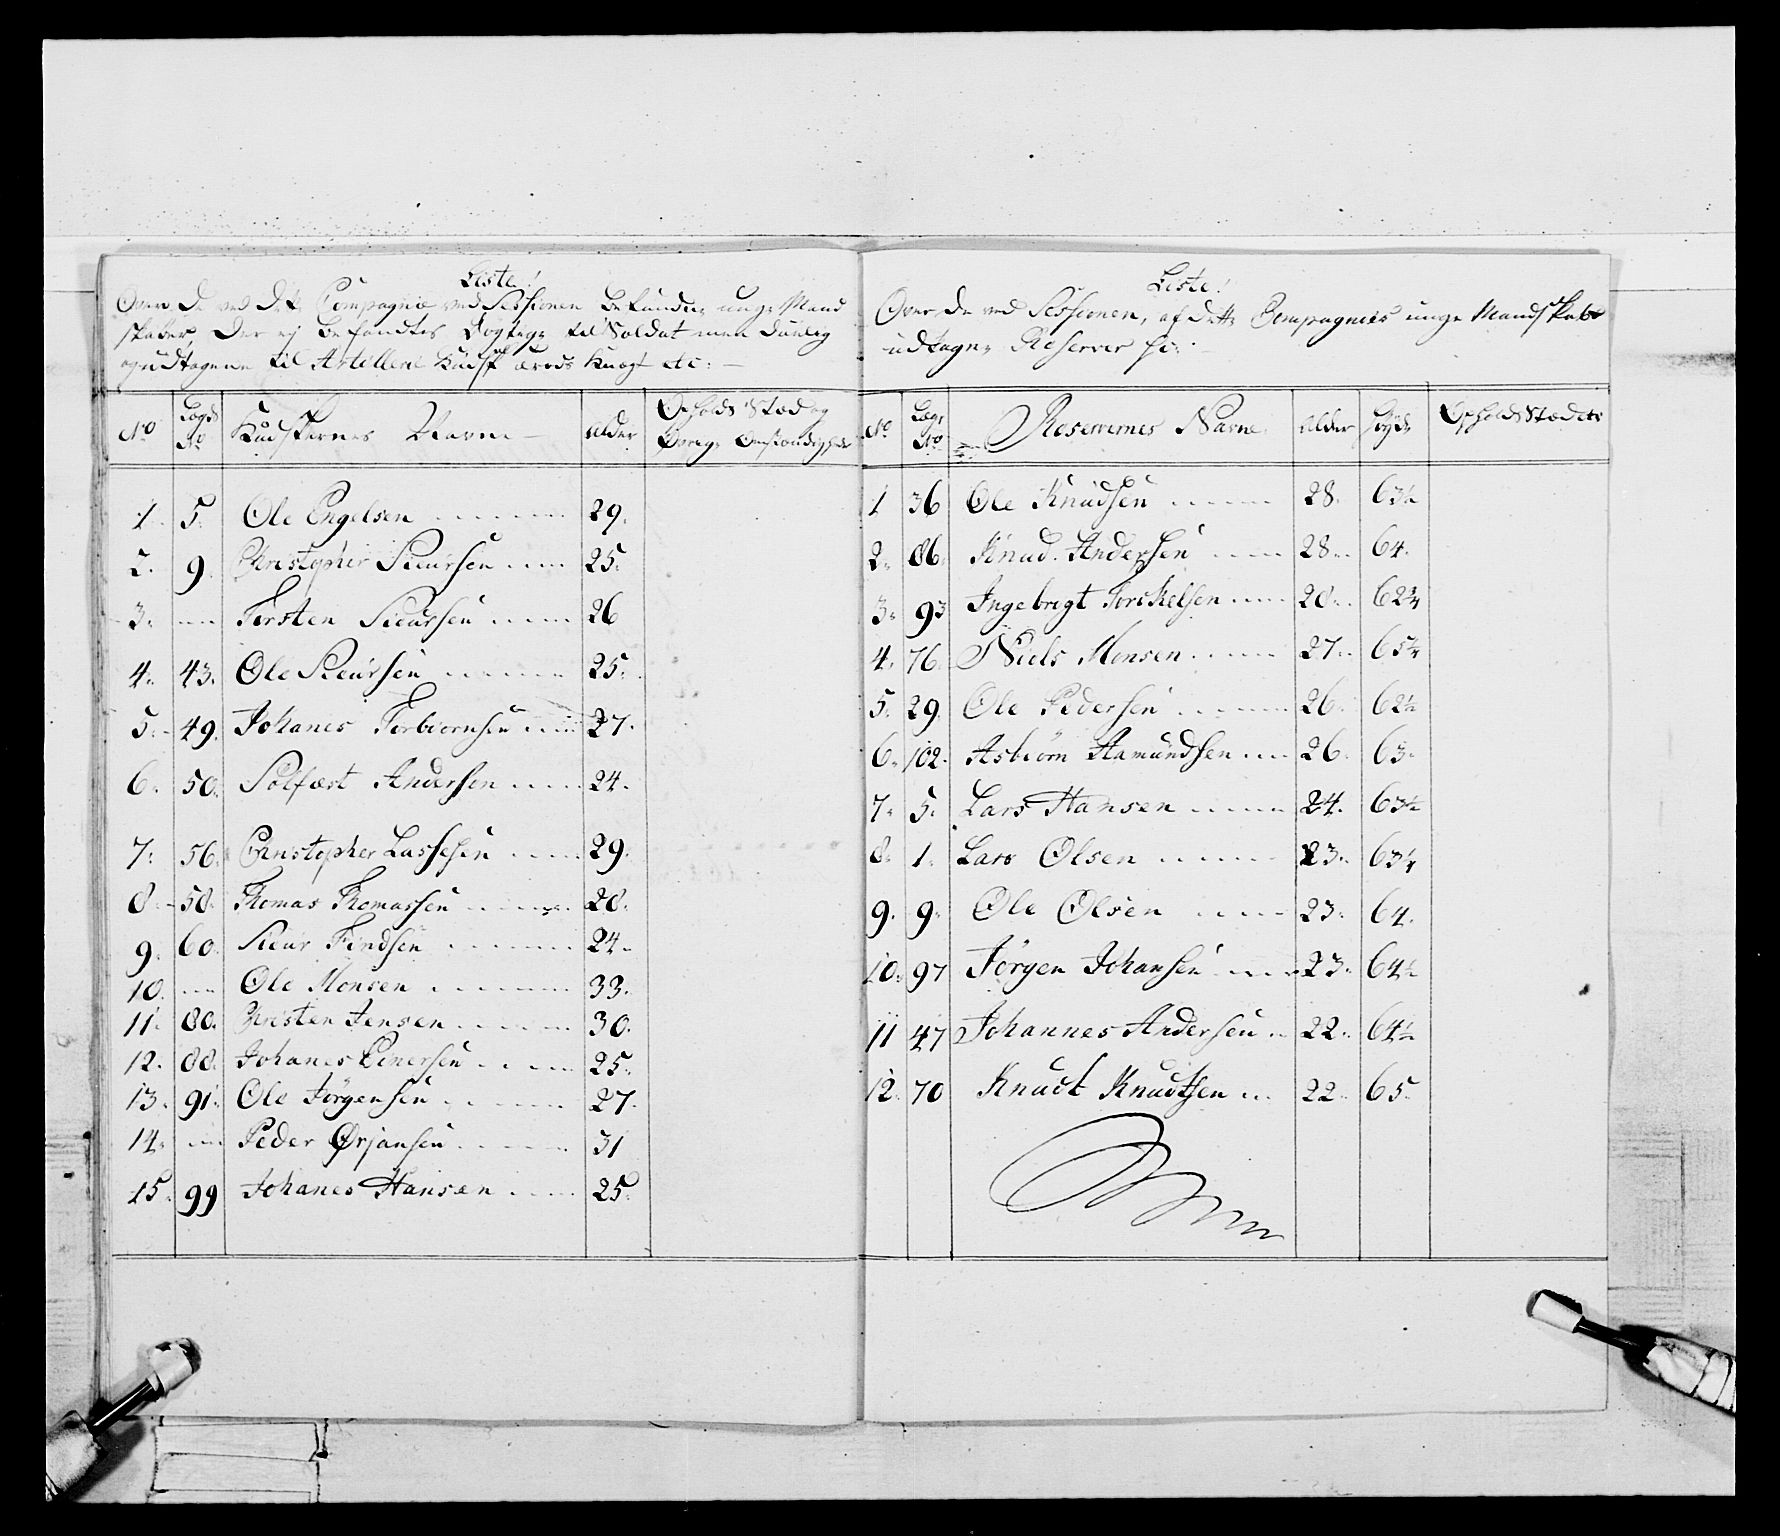 Liste!
Over De ved Dette Compagnie ved Sessionen befundne unge Mand
skaber, Der ej befandtes Dögtige til Soldat men Duelig
og udtagne til Artillerie Kudsk Knægt etc: —
No Lægds No Kudskernes Navne Alder Opholds Stæd og
Øvrige Omstændigheder
1. 5. Ole Engelsen 29.
2. 9. Christopher Sieursen 25.
3. — Torsten Sieursen 26
4. 43. Ole Sieursen 25.
5. 49. Johanes Torbiornsen 27.
6. 50. Solfæst Andersen 24.
7. 56. Christopher Lassesen 29.
8. 58. Thomas Thomassen 28.
9. 60. Sieur Findsen 24.
10. — Ole Monsen 33.
11. 80. Christen Jensen 30.
12. 88. Johanes Einersen 25.
13. 91. Ole Jörgensen 27.
14. — Peder Ørjansen 31
15. 99 Johanes Hansen 25.
Liste!
Over De ved Sessionen, af Dette Compagnies unge Mandskaber
udtagne Reserver
No Lægs No Reservernes Navne Alder Høyde Opholds Stædets
1 36 Ole Knudsen 28. 63½
2. 86. Knud Andersen 28. 64.
3. 93 Ingebrigt Torckelsen 28. 62¾
4. 76. Niels Monsen 27. 65¼
5. 29. Ole Pedersen 26. 62½
6. 102. Asbiörn Aamundsen 26. 63.
7. 5. Lars Hansen 24. 63½
8. 1. Lars Olsen 23. 63¼
9. 9. Ole Olsen 23. 64.
10. 97 Jörgen Johansen 23. 64½
11 47 Johannes Andersen 22. 64½
12. 70 Knudt Knudtsen 22. 65.